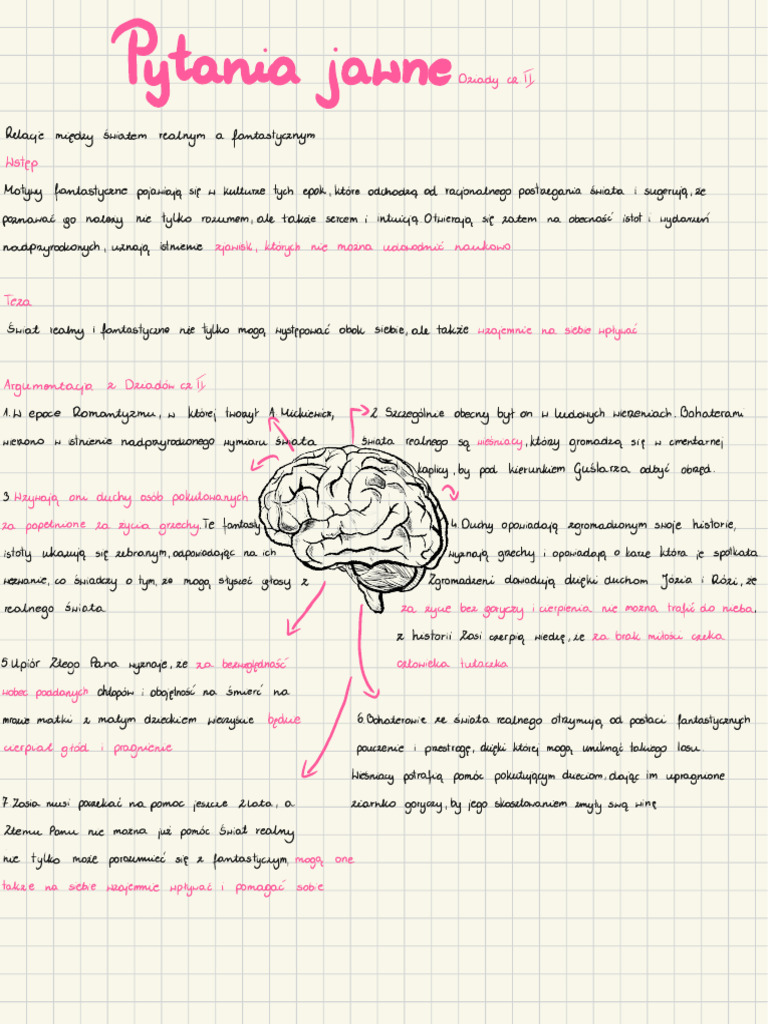 Pytania jawne Dziady cz. II
Relacje między światem realnym a fantastycznym
Wstęp
Motywy fantastyczne pojawiają się w kulturze tych epok, które odchodzą od racjonalnego postrzegania świata i sugerują, że
poznawać go należy nie tylko rozumem, ale także sercem i intuicją. Otwierają się zatem na obecność istot i wydarzeń
nadprzyrodzonych, uznają istnienie zjawisk, których nie można udowodnić naukowo
Teza
Świat realny i fantastyczne nie tylko mogą występować obok siebie, ale także wzajemnie na siebie wpływać
Argumentacja z Dziadów cz II
1. W epoce Romantyzmu, w której tworzył A. Mickiewicz,
wierzono w istnienie nadprzyrodzonego wymiaru świata.
2. Szczególnie obecny był on w ludowych wierzeniach. Bohaterami
świata realnego są wieśniacy, którzy gromadzą się w cmentarnej
kaplicy, by pod kierunkiem Guślarza odbyć obrzęd.
3. Wzywają oni duchy osób pokutowanych
za popełnione za życia grzechy. Te fantasty
istoty ukazują się zebranym, odpowiadając na ich
wezwanie, co świadczy o tym, że mogą słyszeć głosy z
realnego świata
4. Duchy opowiadają zgromadzonym swoje historie,
wyznają grzechy i opowiadają o karze która je spotkała
Zgromadzeni dowiadują dzięki duchom Józia i Rózi, że
za życie bez goryczy i cierpienia nie można trafić do nieba.
z historii Zosi czerpią wiedzę, że za brak miłości czeka
człowieka tułaczka
5 Upiór Złego Pana wyznaje, że za bezwzględność
wobec poddanych chłopów i obojętność na śmierć na
mrozie matki z małym dzieckiem wieczyście będzie
cierpiał głód i pragnienie
6. Bohaterowie ze świata realnego otrzymują od postaci fantastycznych
pouczenie i przestrogę, dzięki której mogą uniknąć takiego losu.
Wieśniacy potrafią pomóc pokutującym dzieciom, dając im upragnione
ziarnko goryczy, by jego skosztowaniem zmyły swą winę
7. Zosia musi poczekać na pomoc jeszcze 2 lata, a
Złemu Panu nie można już pomóc Świat realny
nie tylko może porozumieć się z fantastycznym, mogą one
także na siebie wzajemnie wpływać i pomagać sobie